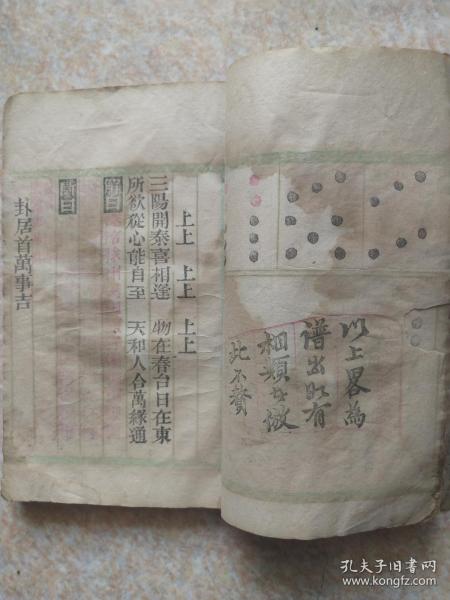 以上畧為
譜出如有
相類者倣
此不贅
上上 上上 上上
三陽開泰喜相逢 物在春台日在東
所欲從心能自至 天和人合萬緣通
解曰
斷曰
卦居首萬事吉
孔夫子旧书网
www.kongfz.com